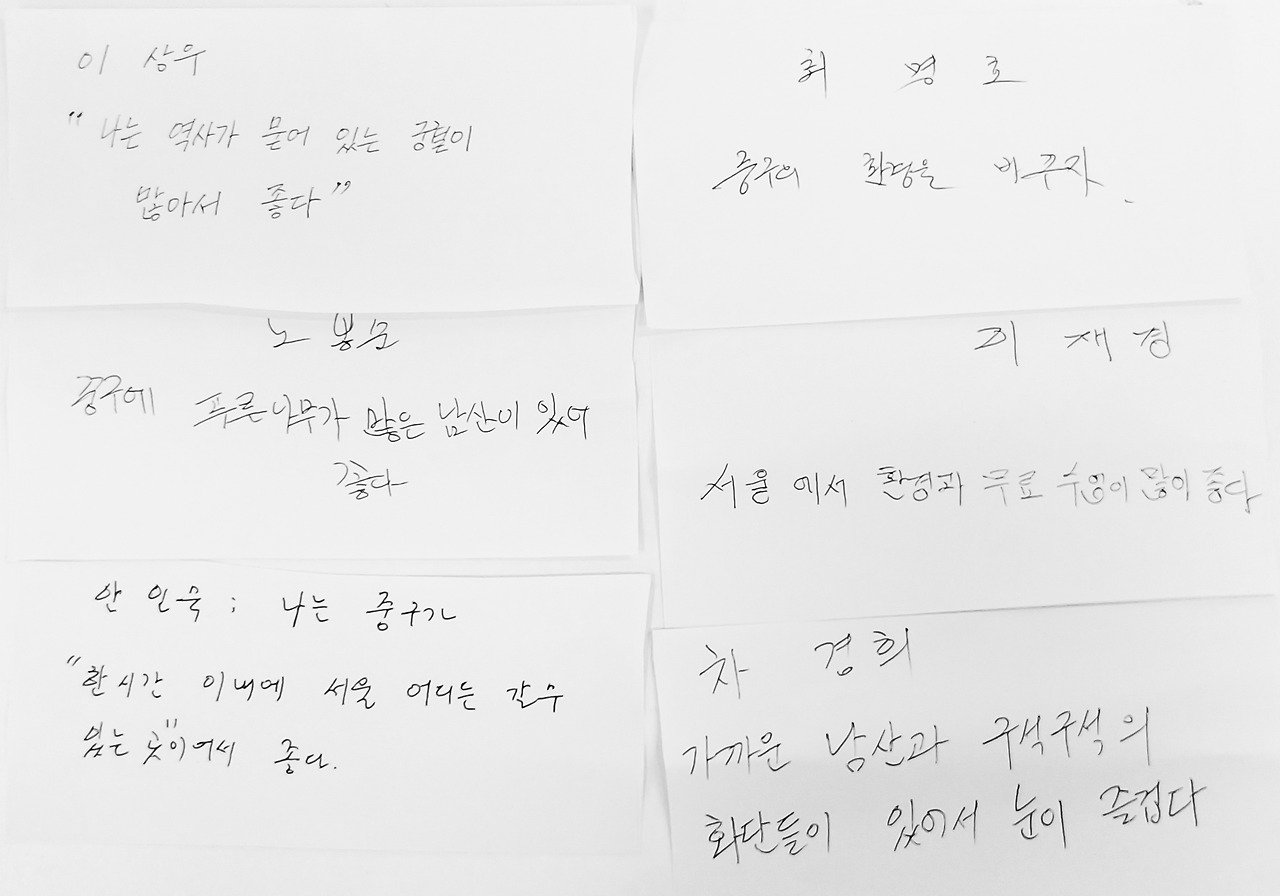 이 상우
"나는 역사가 묻어 있는 궁궐이
많아서 좋다"
최 명 호
중구의 화장을 바꾸자.
노 봉문
중구에 푸른나무가 많은 남산이 있어
좋다
이 재경
서울 에서 환경과 무료 수업이 많이 좋다
안 인묵 ; 나는 중구가
"한시간 이내에 서울 어디는 갈수
있는 곳"이어서 좋다.
차 경희
가까운 남산과 구석구석의
화단들이 있어서 눈이 즐겁다